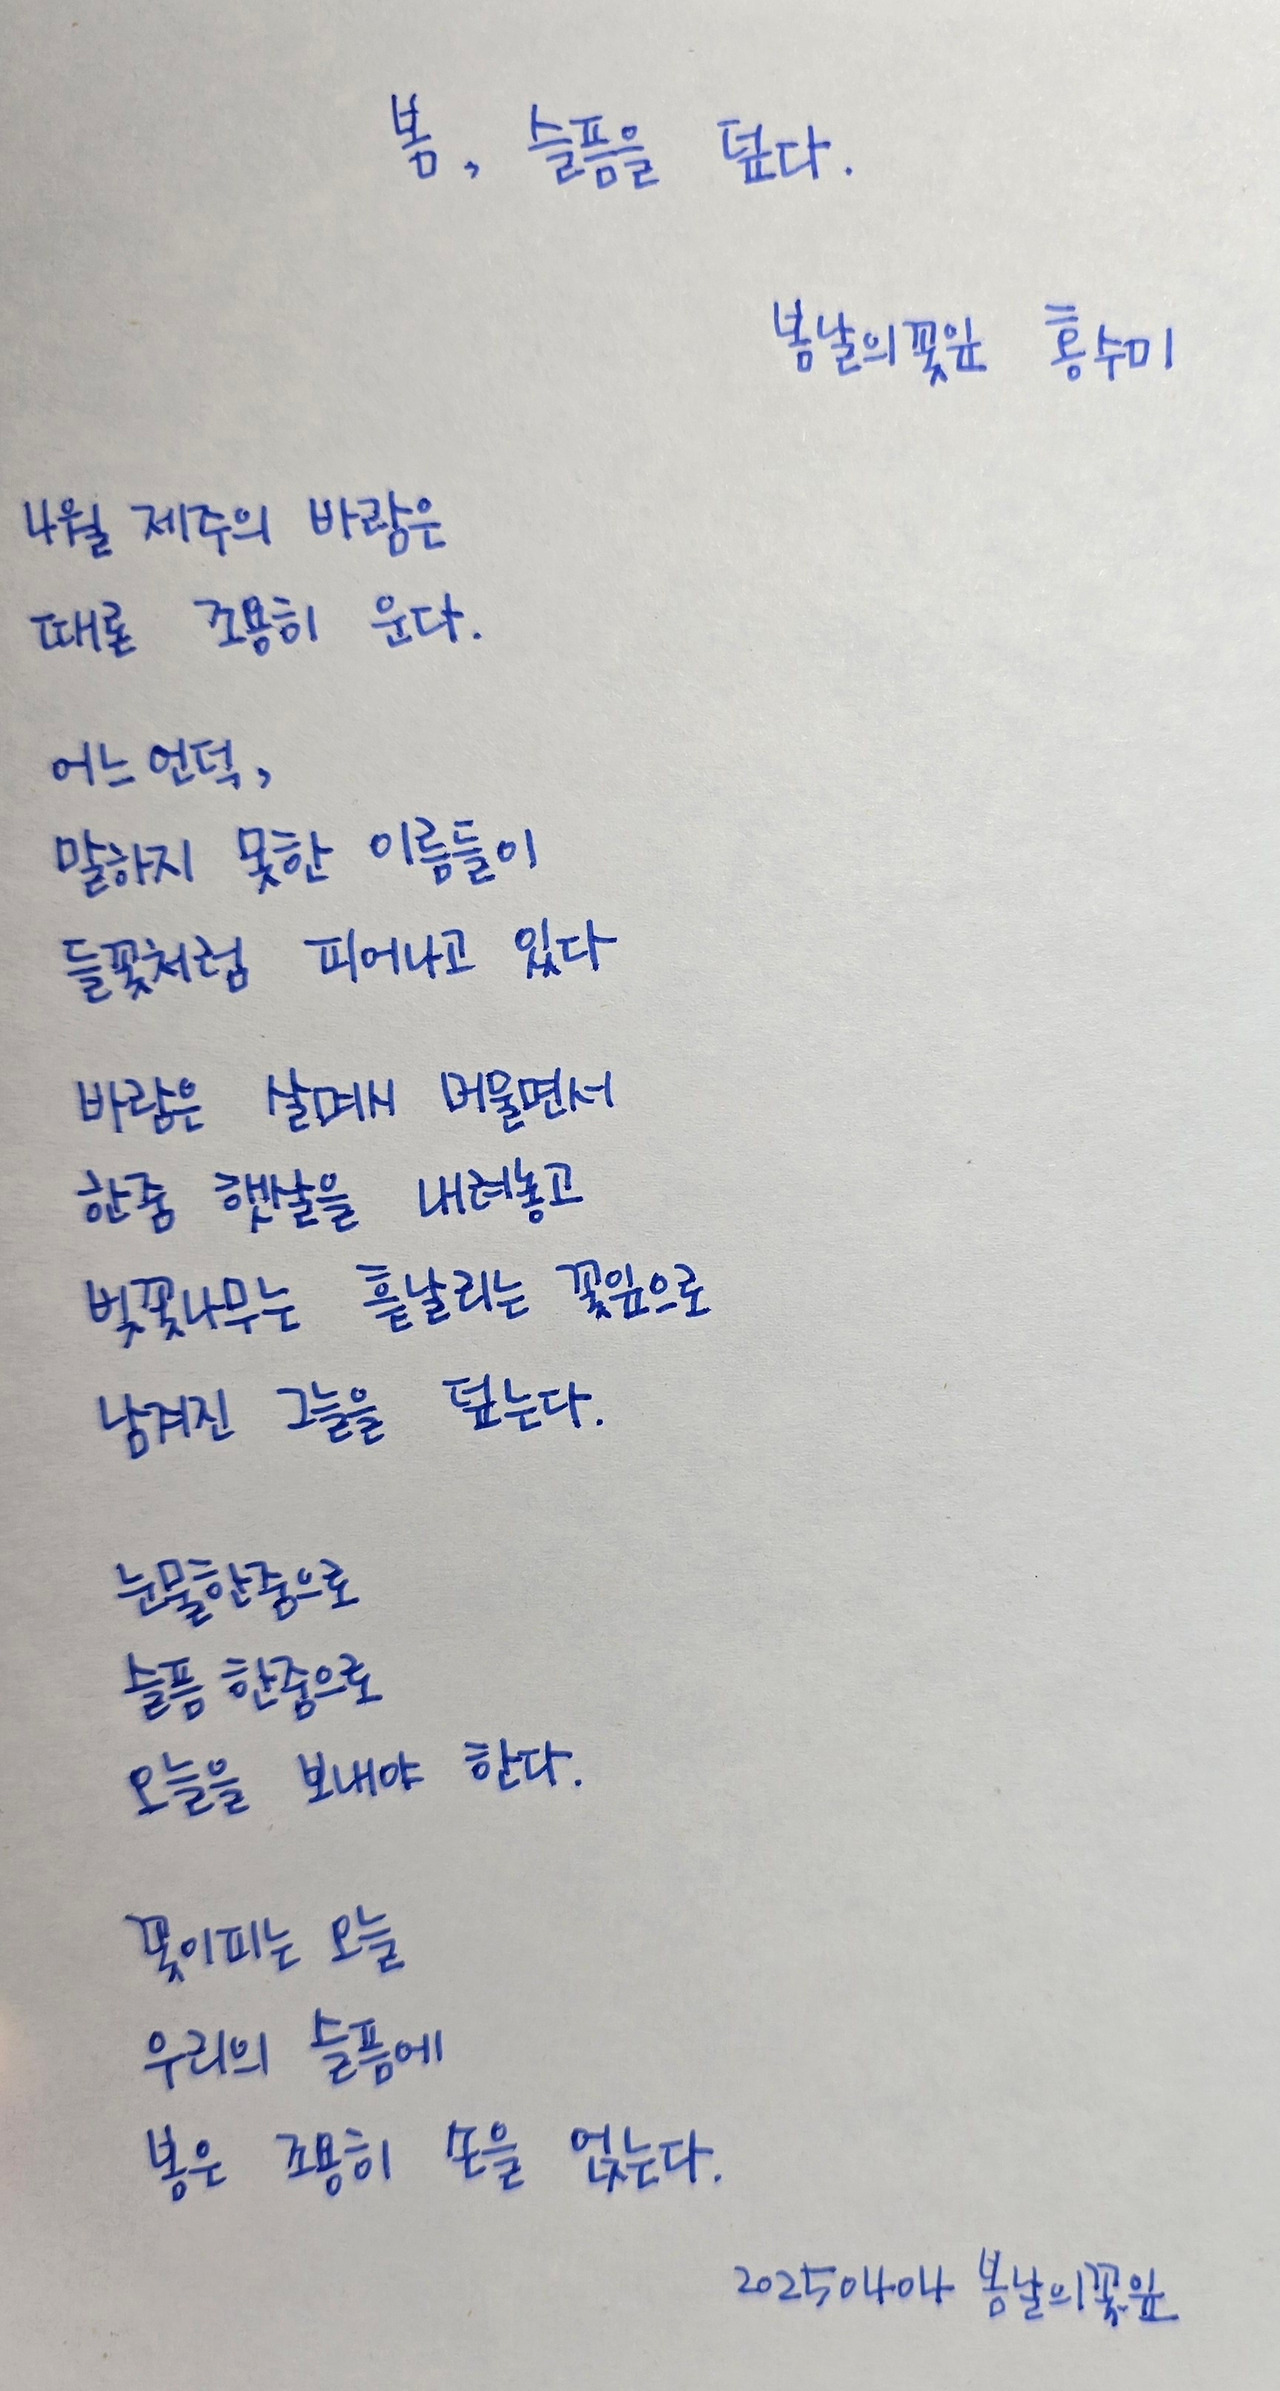 봄, 슬픔을 덮다.
봄날의꽃잎 홍수미
4월 제주의 바람은
때론 조용히 운다.
어느 언덕,
말하지 못한 이름들이
들꽃처럼 피어나고 있다
바람은 살며시 머물면서
한줌 햇살을 내려놓고
벚꽃나무는 흩날리는 꽃잎으로
남겨진 그늘을 덮는다.
눈물한줌으로
슬픔 한줌으로
오늘을 보내야 한다.
꽃이피는 오늘
우리의 슬픔에
봄은 조용히 손을 얹는다.
20250404 봄날의꽃잎